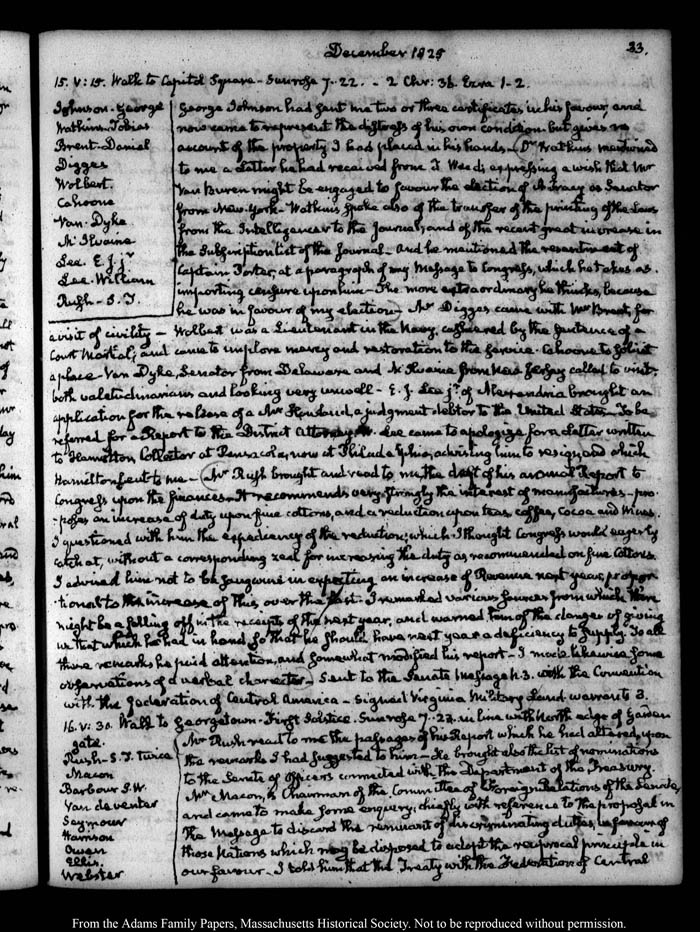 December 1825
33.
15. V: 15. Walk to Capitol Square - Sunrose 7-22. - 2 Chr: 36. Ezra 1-2.
Johnson. George
Watkins. Tobias
Brent. Daniel
Digges
Wolbert.
Cahoone
Van-Dyke
McIlvaine
Lee. E. J. jr
Lee. William
Rush - S.T.
George Johnson had sent me two or three certificates in his favour, and
now came to represent the distress of his own condition. but gives no
account of the property I had placed in his hands - Dr Watkins mentioned
to me a Letter he had received from T. Weed; expressing a wish that Mr
Van Buren might be engaged to favour the election of A. Tracy as Senator
from New-York - Watkins spoke also of the transfer of the printing of the Laws
from the Intelligencer to the Journal; and of the recent great increase in
the Subscription list of the Journal - And he mentioned the resentment of
Captain Porter, at a paragraph of my Message to Congress, which he takes as
importing censure upon him - The more extraordinary he thinks, because
he was in favour of my election - Mr Digges came with Mr Brent, for
a visit of civility - Wolbert was a Lieutenant in the Navy, cashiered by the Sentence of a
Court Martial; and came to implore mercy and restoration to the Service. Cahoone to solicit
a place - Van Dyke, Senator from Delaware and McIlvaine from New Jersey called to visit.
both valetudinarians and looking very unwell - E. J. Lee jr. of Alexandria brought an
application for the release of a Mr a judgment debtor to the United States - To be
referred for a Report to the District Attorney. W. Lee came to apologize for a Letter written
to Hamilton Collector at Pensacola, now at Philadelphia, advising him to resign, and which
Hamilton sent to me - Mr Rush brought and read to me, the draft of his annual Report to
Congress upon the finances - It recommends very strongly the interest of manufactures - pro-
-poses an increase of duty upon fine cottons, and a reduction upon teas, coffee, Cocoa and Wines.
I questioned with him the expediency of the reduction; which I thought Congress would eagerly
catch at, without a corresponding zeal for increasing the duty as recommended on fine Cottons.
I advised him not to be sanguine in expecting an increase of Revenue next year, propor-
-tional to the increase of this, over the last. I remarked various sources from which there
might be a falling off in the receipts of the next year, and warned him of the danger of giving
us that which he had in hand, so that he should have next year a deficiency to supply. To all
these remarks he paid attention, and somewhat modified his report - I made likewise some
observations of a verbal character - Sent to the Senate Message N. 3. with the Convention
with the Federation of Central America - Signed Virginia Military Land warrants 3.
16. V: 30. Walk to Georgetown. First Solstice. Sunrose 7-22. in line with North edge of Garden
gate.
Rush - S.T. twice
Macon
Barbour J. W.
Van deventer
Seymour
Harrison
Owen
Ellis.
Webster
Mr Rush read to me the passages of his Report which he had altered, upon
the remarks I had suggested to him - He brought also the list of nominations
to the Senate of officers connected with the Department of the Treasury.
Mr Macon, is Chairman of the Committee of Foreign Relations of the Senate,
and came to make some enquiry, chiefly with reference to the proposal in
the Message to discard the remnant of discriminating duties, in favour of
those Nations which may be disposed to adopt the reciprocal principle in
our favour. I told him that the Treaty with the Federation of Central
From the Adams Family Papers, Massachusetts Historical Society. Not to be reproduced without permission.